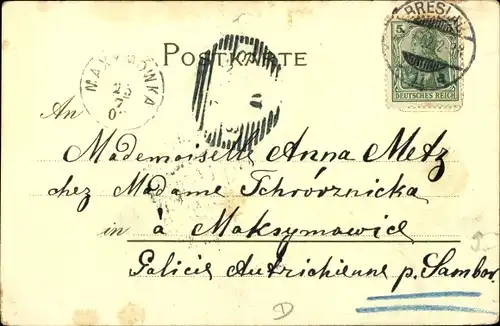 POSTKARTE
BRESLAU
5
DEUTSCHES REICH
MAKSYMÓWKA
25
An
Mademoiselle Anna Metz
chez Madame Tchrórznicka
in à Maksymowice
Galicie Autrichienne p. Sambor.
D